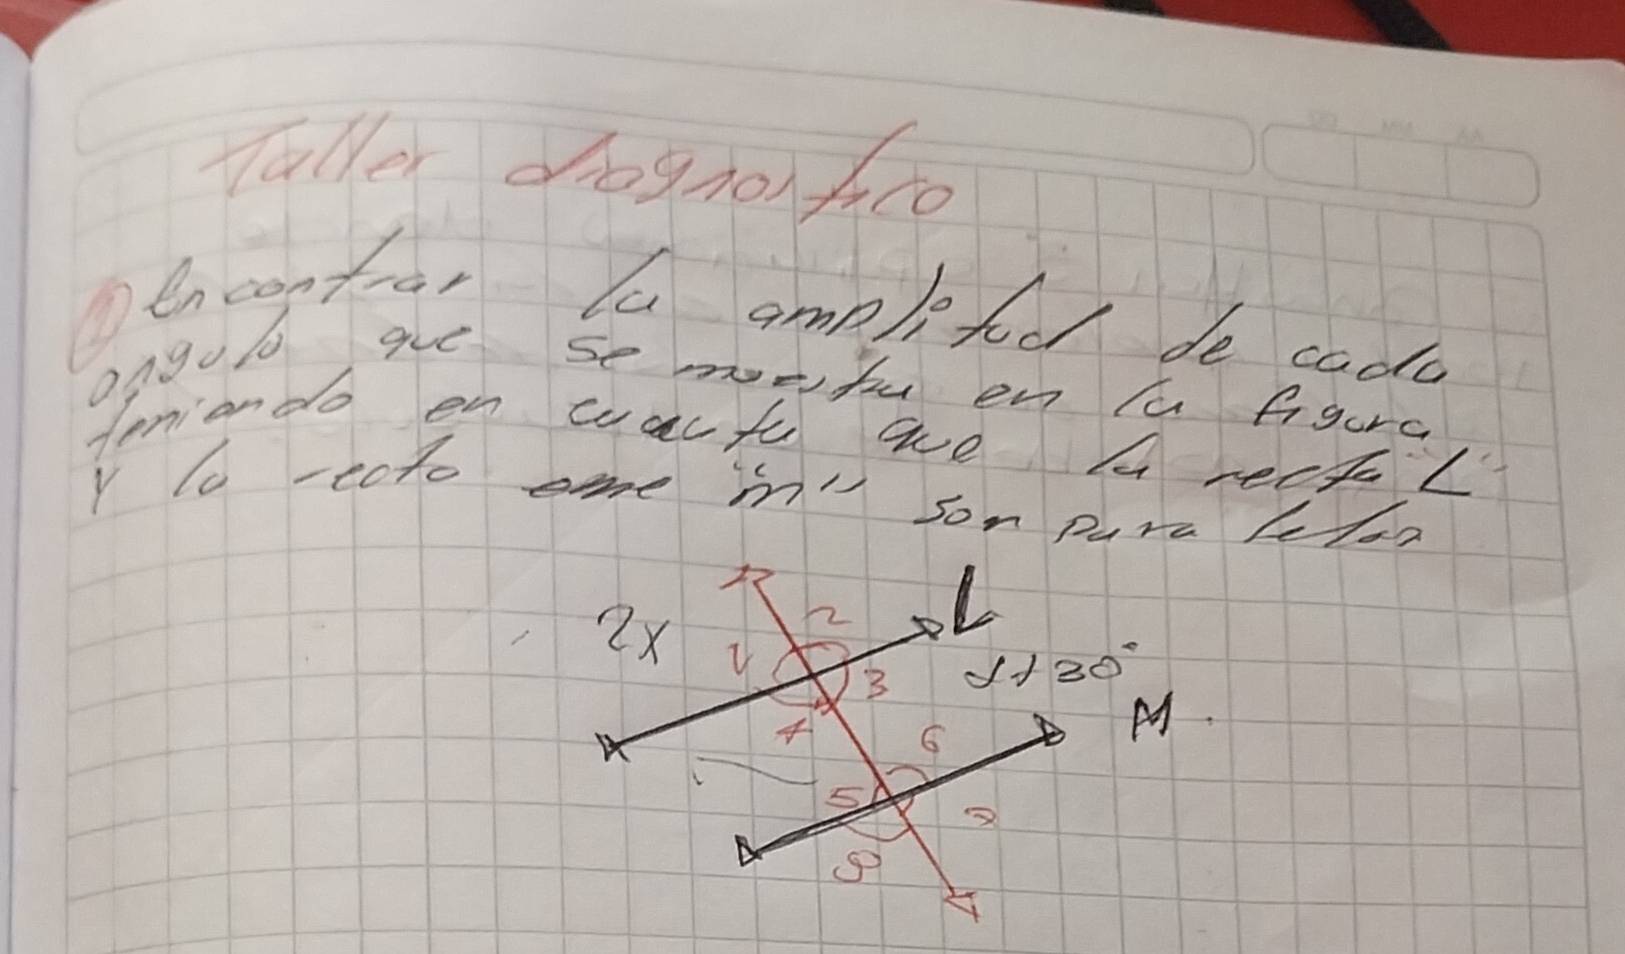 Taller diagnostico
① Encontrar la amplitud de cada
angulo que se muestra en la figura
teniendo en cuenta que la recta "L"
Y la recta eme "m" son paralelas
L
2x 1 2
3 x+30°
4 M.
6
5 7
8